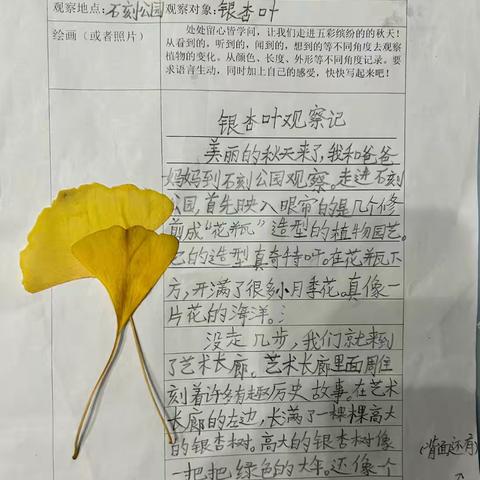 观察地点:石刻公园观察对象:银杏叶
绘画(或者照片)
处处留心皆学问,让我们走进五彩缤纷的的秋天!
从看到的,听到的,闻到的,想到的等不同角度去观察
植物的变化。从颜色、长度、外形等不同角度记录。要
求语言生动,同时加上自己的感受,快快写起来吧!
银杏叶观察记
美丽的秋天来了,我和爸爸
妈妈到石刻公园观察。走进石刻
公园,首先映入眼帘的是几个修
剪成“花瓶”造型的植物园艺。
它的造型真奇特呀。在花瓶下
方,开满了很多小月季花。真像一
片花的海洋。
没走几步,我们就来到
了艺术长廊。艺术长廊里面周住
刻着许多有趣历史故事。在艺术
长廊的左边,长满了一棵棵高大
的银杏树。高大的银杏树像
一把把绿色的大伞。还像一个
(背面还有)